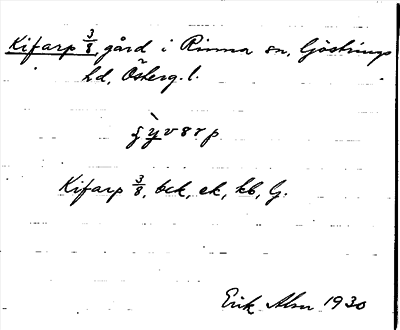 Kifarp 3/8, gård i Rinna sn, Göstrings
hd, Österg. l.
Kifarp 3/8, bck, ek, kb, G.
Erik Abm 1930